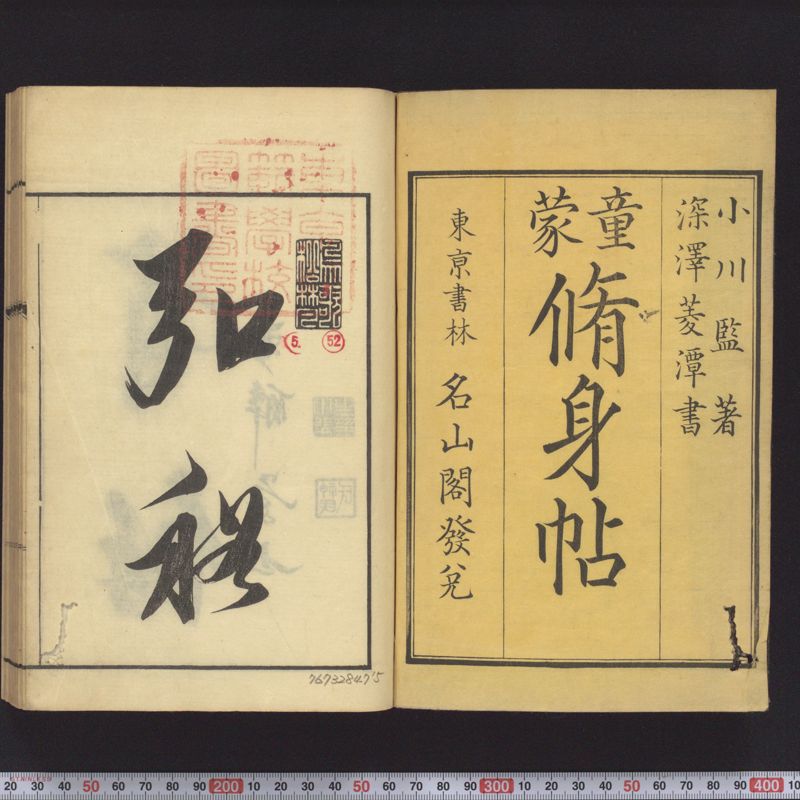 小川監著
深澤菱潭書
童蒙
脩身帖
東京書林 名山閣發兌
弘
裕
52
5.
767328475
STAINLESS
20 30 40 50 60 70 80 90 200 10 20 30 40 50 60 70 80 90 300 10 20 30 40 50 60 70 80 90 400 10